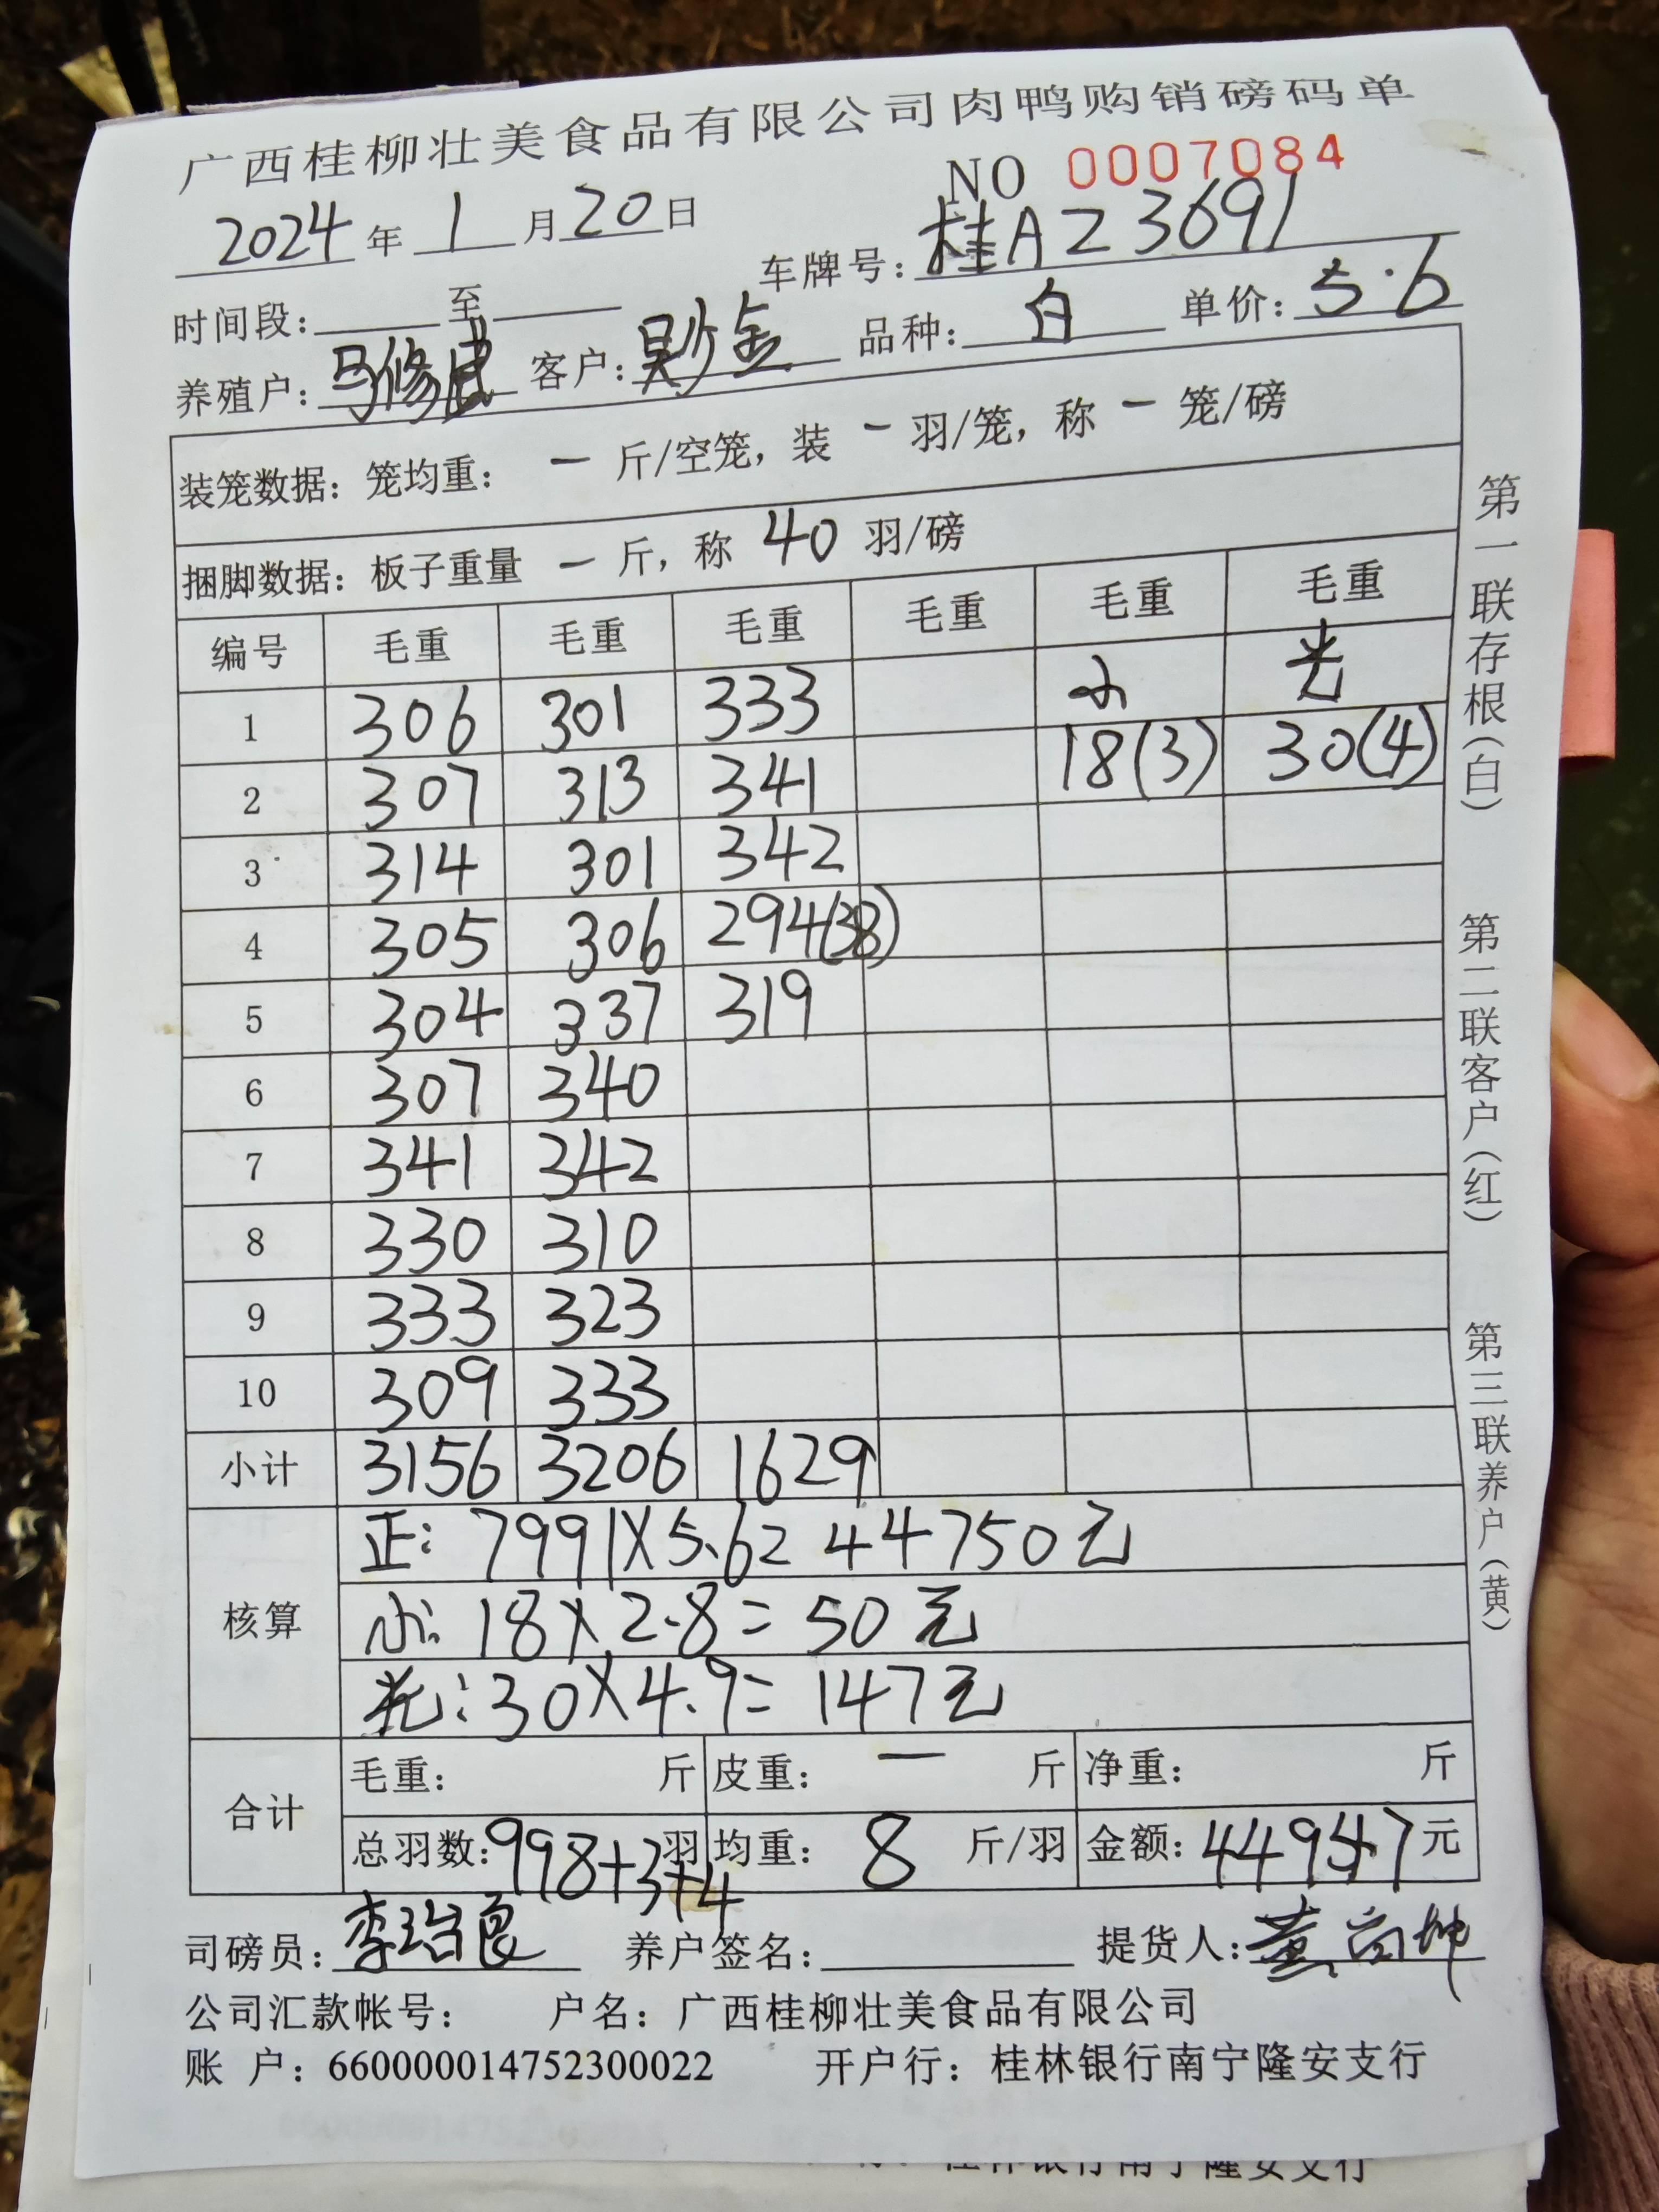 广西桂柳壮美食品有限公司肉鸭购销磅码单
NO 0007084
2024 年 1 月 20 日
车牌号: 桂A Z3691
时间段: 至
养殖户: 马修武 客户: 吴少金 品种: 白 单价: 5.6
装笼数据: 笼均重: 一 斤/空笼, 装 一 羽/笼, 称 一 笼/磅
捆脚数据: 板子重量 一 斤, 称 40 羽/磅
编号 毛重 毛重 毛重 毛重 毛重 毛重
1 306 301 333 小 光
2 307 313 341 18(3) 30(4)
3 314 301 342
4 305 306 294(38)
5 304 337 319
6 307 340
7 341 342
8 330 310
9 333 323
10 309 333
小计 3156 3206 1629
核算 正: 7991X5.6= 44750元
小: 18X2.8= 50元
光: 30X4.9= 147元
合计 毛重: 斤 皮重: 一 斤 净重: 斤
总羽数: 998+3+4 羽 均重: 8 斤/羽 金额: 44947 元
司磅员: 李 良 养户签名: 提货人: 黄
公司汇款帐号: 户名: 广西桂柳壮美食品有限公司
账 户: 660000014752300022 开户行: 桂林银行南宁隆安支行
第一联存根(白) 第二联客户(红) 第三联养户(黄)
桂林银行南宁隆安支行